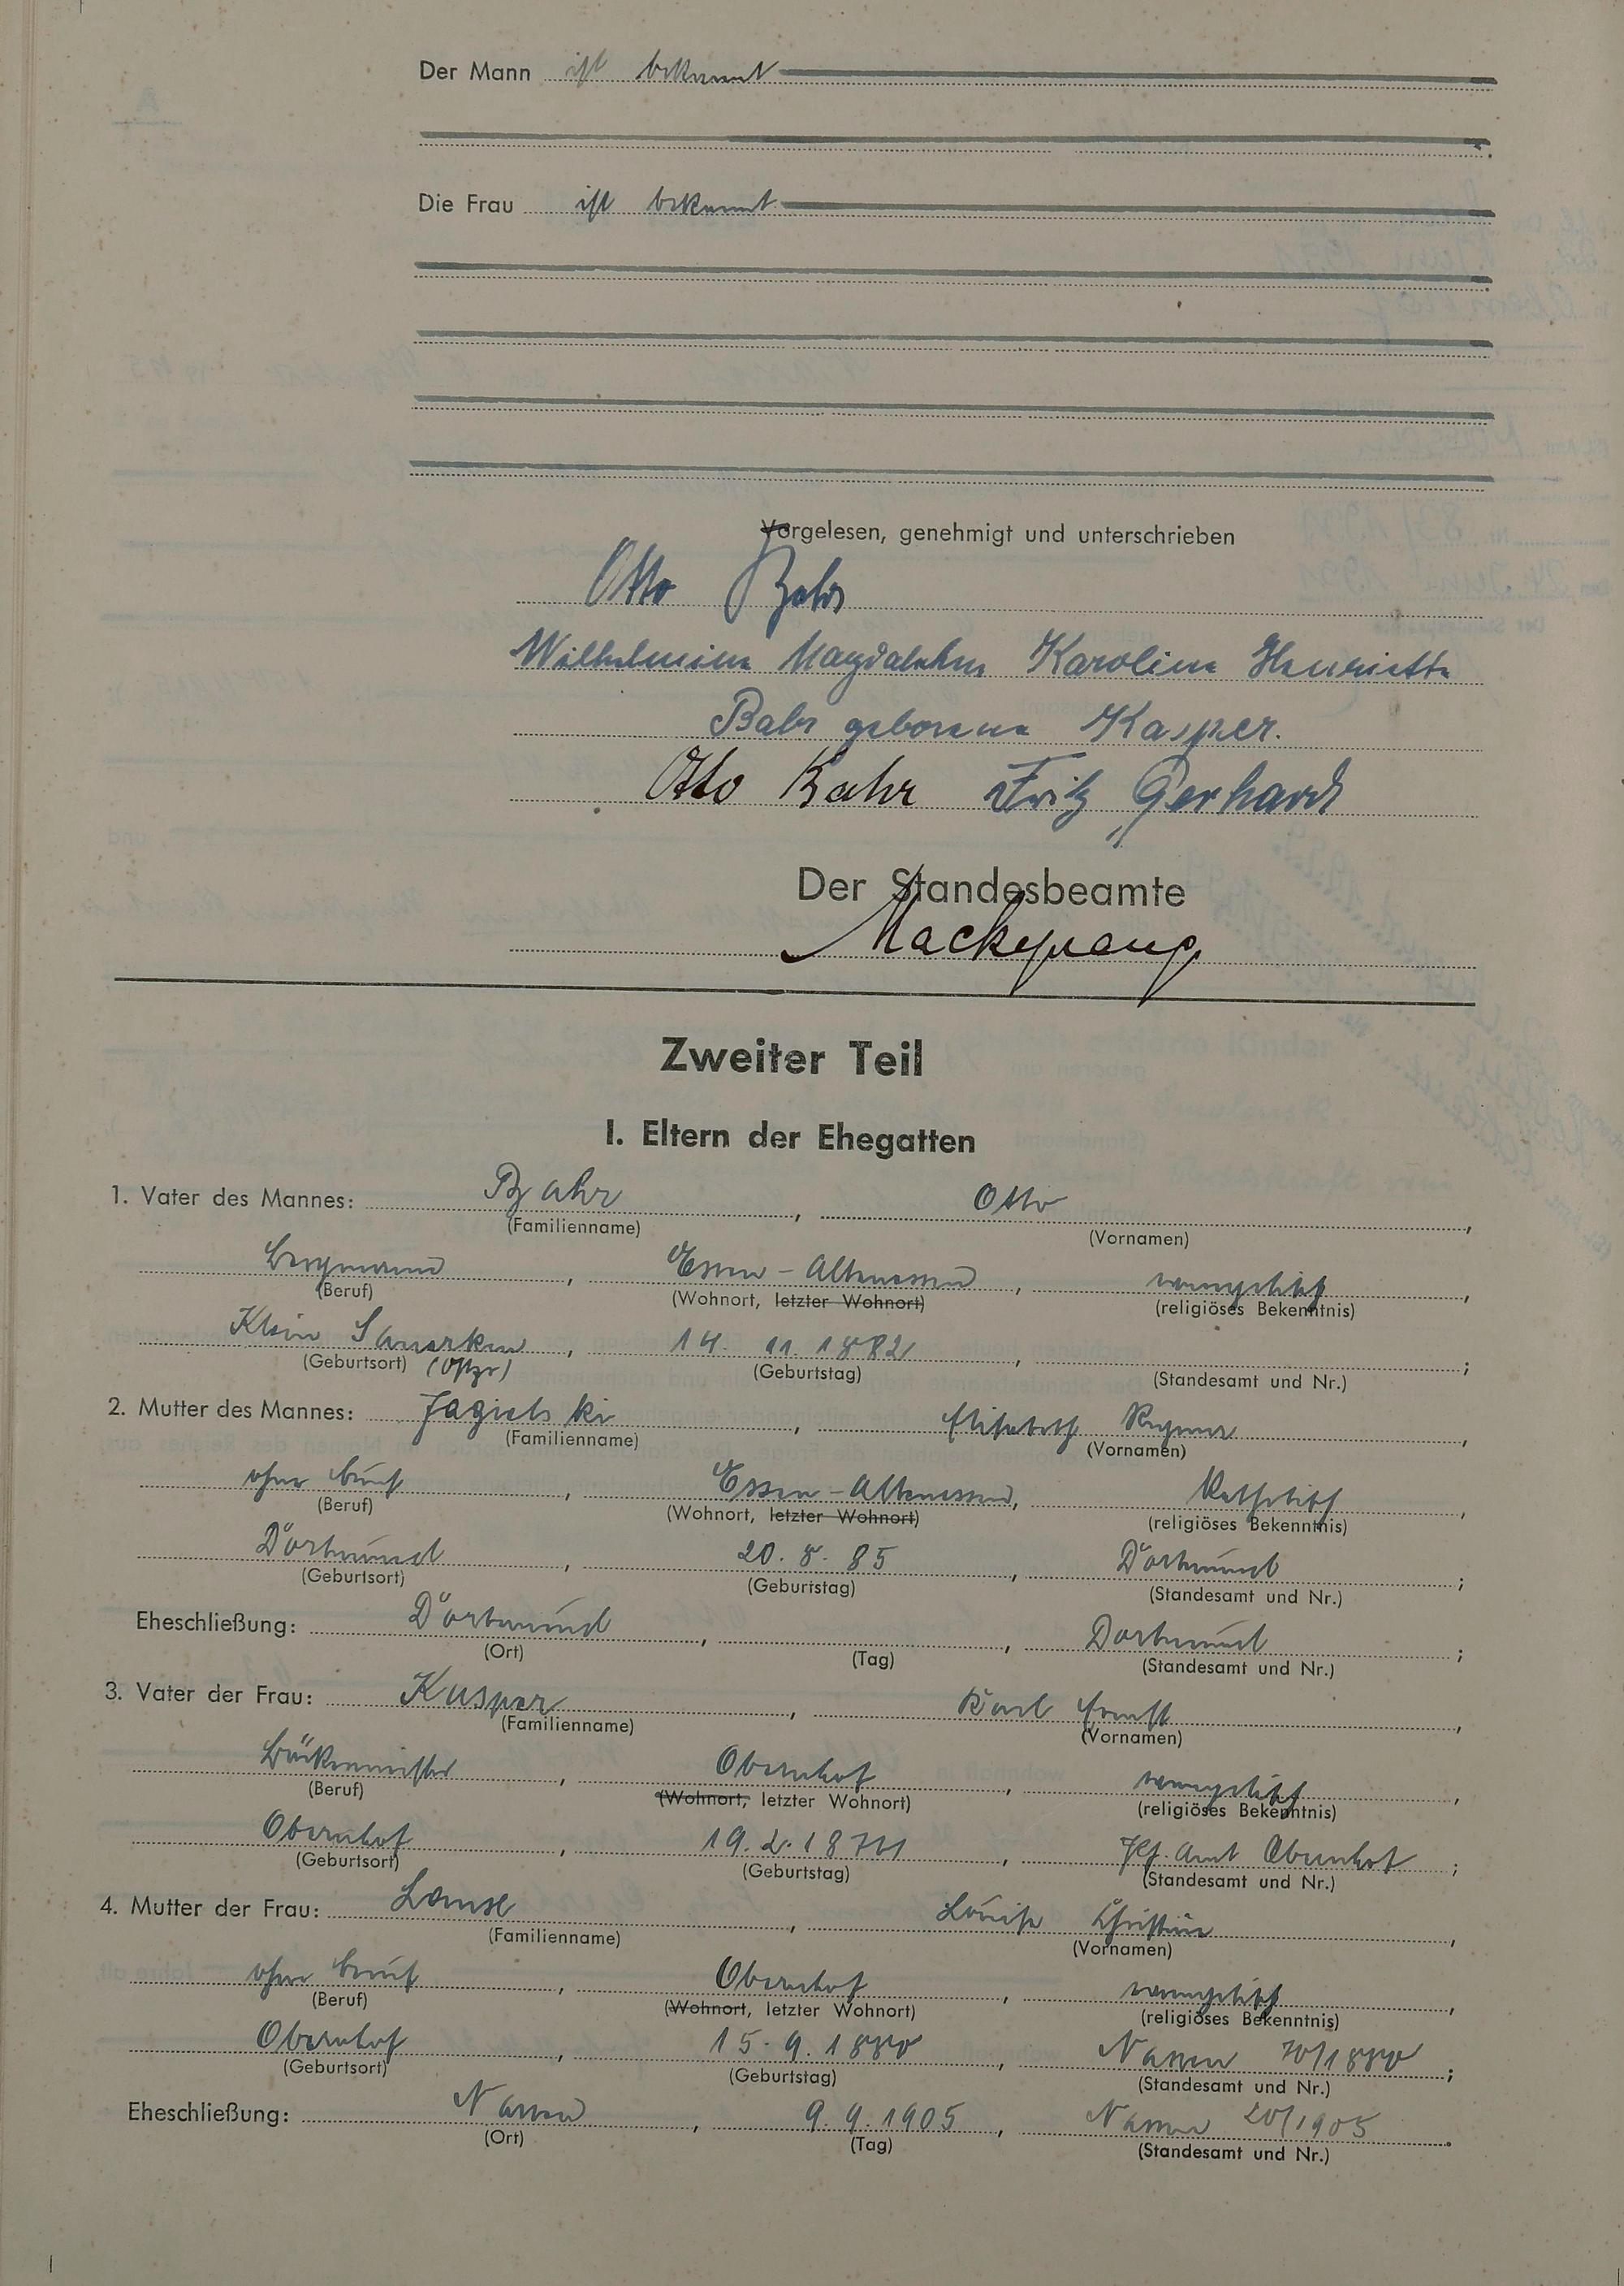 Der Mann ist bekannt
Die Frau ist bekannt
Vorgelesen, genehmigt und unterschrieben
Otto
Wilhelmine Magdalehne Karoline Henriette
geborene Kasper.
Otto Bahr Fritz Gerhardt
Der Standesbeamte
Zweiter Teil
I. Eltern der Ehegatten
1. Vater des Mannes: Bahr, Otto,
(Familienname) (Vornamen)
Bergmann, Essen-Altenessen, evangelisch,
(Beruf) (Wohnort, letzter Wohnort) (religiöses Bekenntnis)
Klein, 14. 11. 1882,;
(Geburtsort) (Ostpr) (Geburtstag) (Standesamt und Nr.)
2. Mutter des Mannes: Jagielski, Elisabeth Regine,
(Familienname) (Vornamen)
ohne Beruf, Essen-Altenessen, katholisch,
(Beruf) (Wohnort, letzter Wohnort) (religiöses Bekenntnis)
Dortmund, 20. 8. 85, Dortmund;
(Geburtsort) (Geburtstag) (Standesamt und Nr.)
Eheschließung: Dortmund,, Dortmund;
(Ort) (Tag) (Standesamt und Nr.)
3. Vater der Frau: Kasper, Karl Ernst,
(Familienname) (Vornamen)
Bäckermeister, Obernhof, evangelisch,
(Beruf) (Wohnort, letzter Wohnort) (religiöses Bekenntnis)
Obernhof, Pf. Amt Obernhof;
(Geburtsort) (Geburtstag) (Standesamt und Nr.)
4. Mutter der Frau:, Louise Christine,
(Familienname) (Vornamen)
ohne Beruf, Obernhof, evangelisch,
(Beruf) (Wohnort, letzter Wohnort) (religiöses Bekenntnis)
Obernhof, 15. 9. 1880, Nassau 70/1880;
(Geburtsort) (Geburtstag) (Standesamt und Nr.)
Eheschließung: Nassau, 9. 9. 1905, Nassau 20/1905.
(Ort) (Tag) (Standesamt und Nr.)